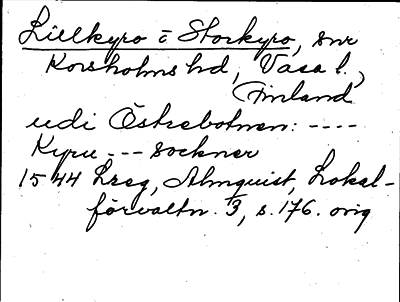 Lillkyro o Storkyro, snr
Korsholms hd, Vasa l.,
(Finland
udi Östrebotnen: ----
Kyru --- sockner
1544 Lreg, Almquist, Lokal-
förvaltn. 3, s. 176. orig